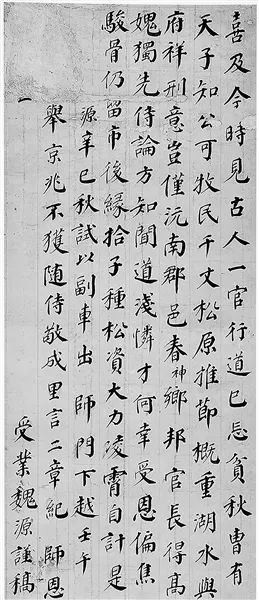 喜及今時見古人一官行道已忘貧秋曹有
天子知公可牧民千丈松原推節概重湖水與
府祥刑意豈僅沅南郡邑春神鄉邦官長得高
媿獨先侍論方知聞道淺憐才何幸受恩偏焦
駿骨仍留市後緣拾子種松資大力淩霄自計是
源辛巳秋試以副車出 師門下越壬午
舉京兆不獲隨侍敬成里言二章紀 師恩
一
受業魏源謹稿